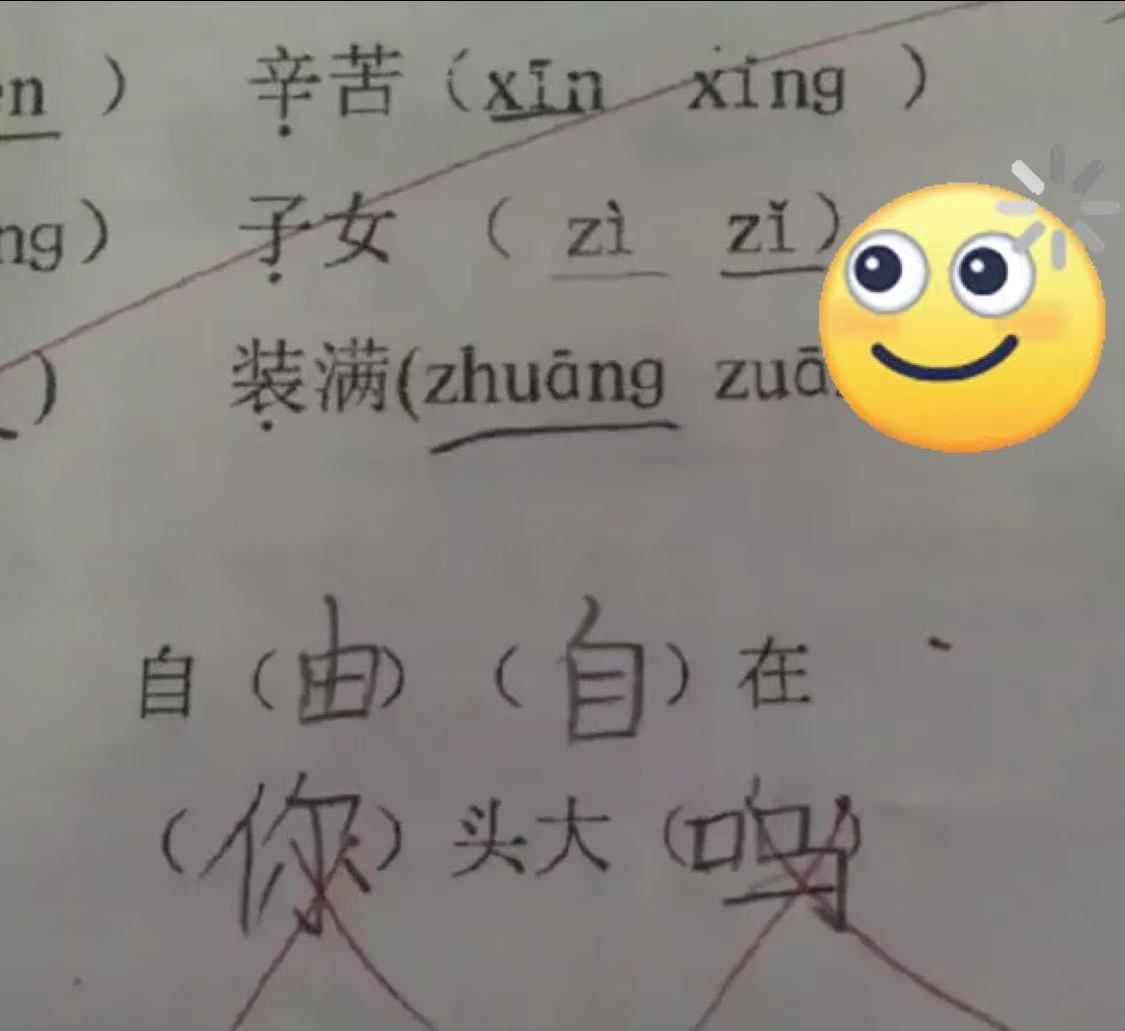 n ） 辛苦（xīn xing ）
ng） 子女 （ zì zǐ）
） 装满(zhuāng zuā
自（由）（自）在
（你）头大（鸣）